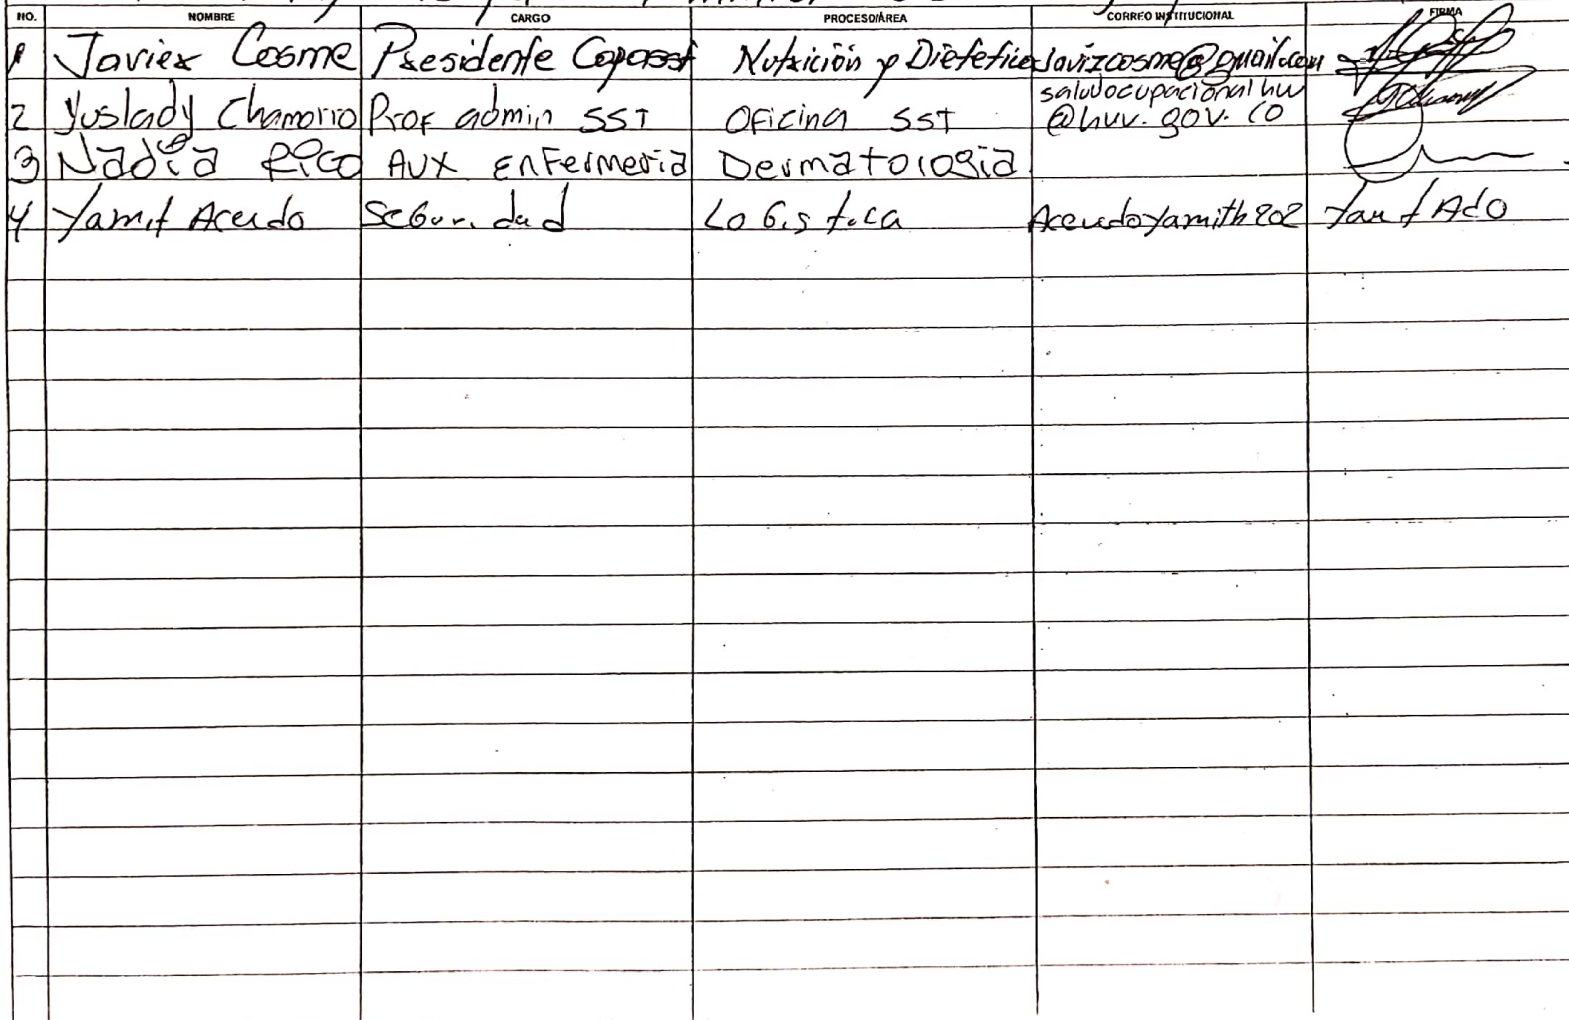 NO. NOMBRE CARGO PROCESO/ÁREA CORREO INSTITUCIONAL FIRMA
1 Javier Cosme Presidente Copasst Nutrición y Dietetica javizcosme@gmail.com
2 Yuslady Chamorro Prof admin SST Oficina SST saludocupacionalhuv
@huv.gov.co
3 Nadia Rico AUX Enfermeria Dermatologia
4 Yamit Acevdo Seguridad Logistica Acevdoyamith202